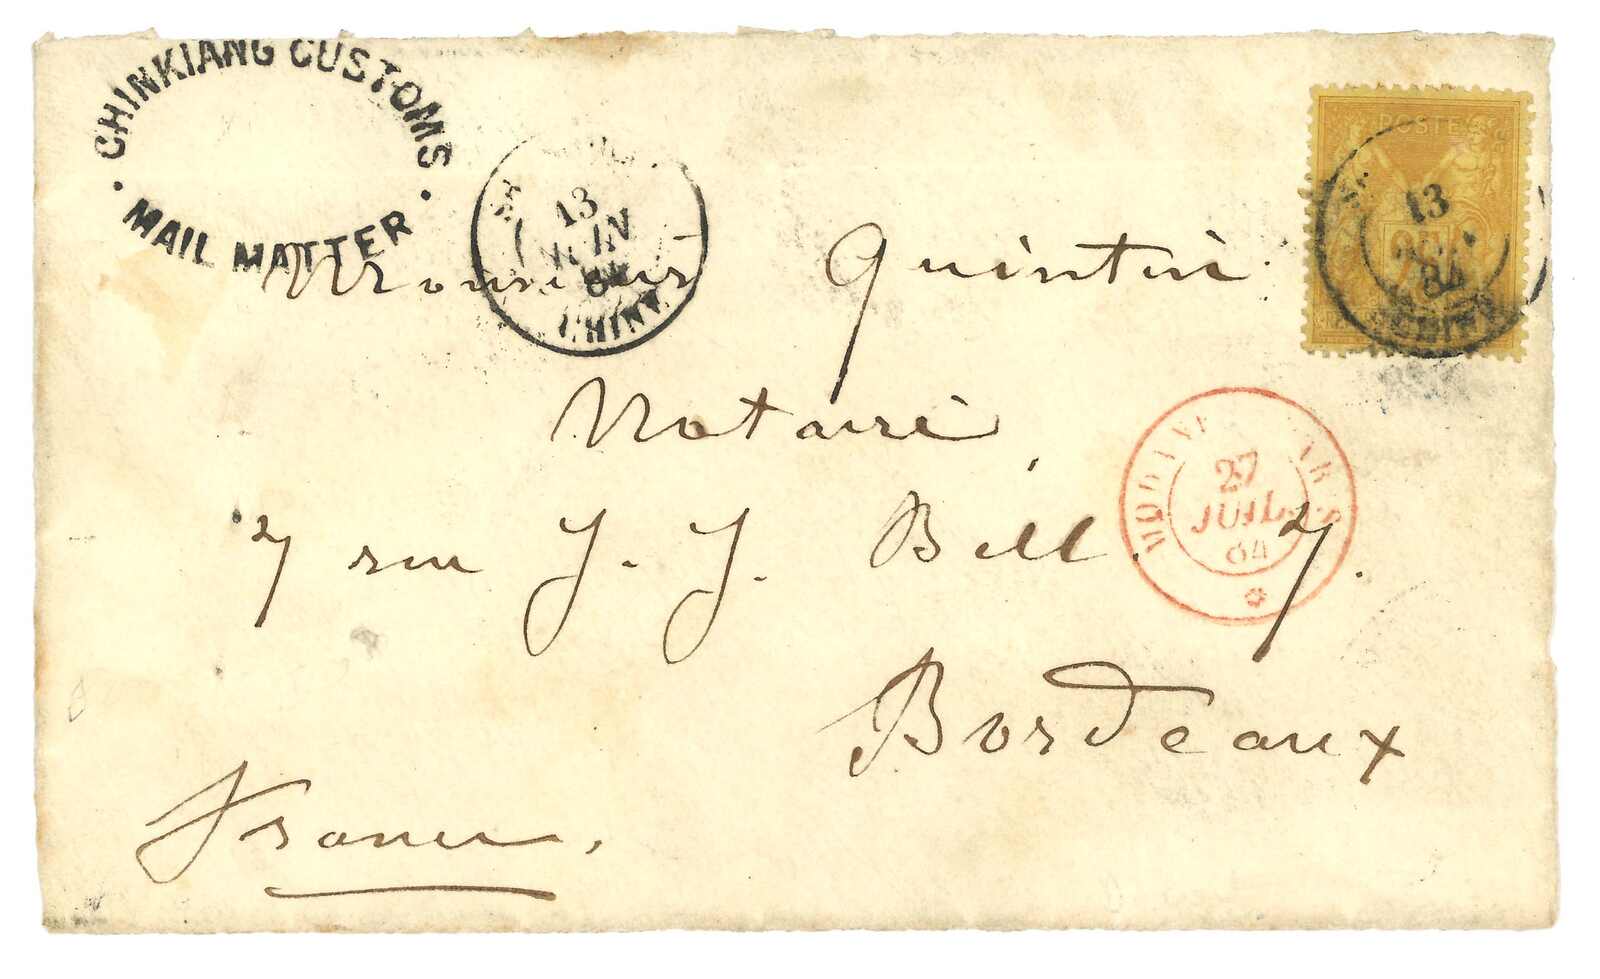 CHINKIANG CUSTOMS
MAIL MATTER
13
JUIN
84
CHINE
POSTE
13
JUIN
84
CHINE
Monsieur Quintin
Notaire,
7 rue J. J. Bell. 7.
Bordeaux
France.
27
JUIL
84